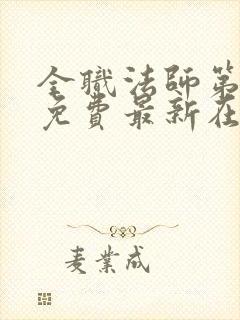 全職法師第
免費最新在
麦業成